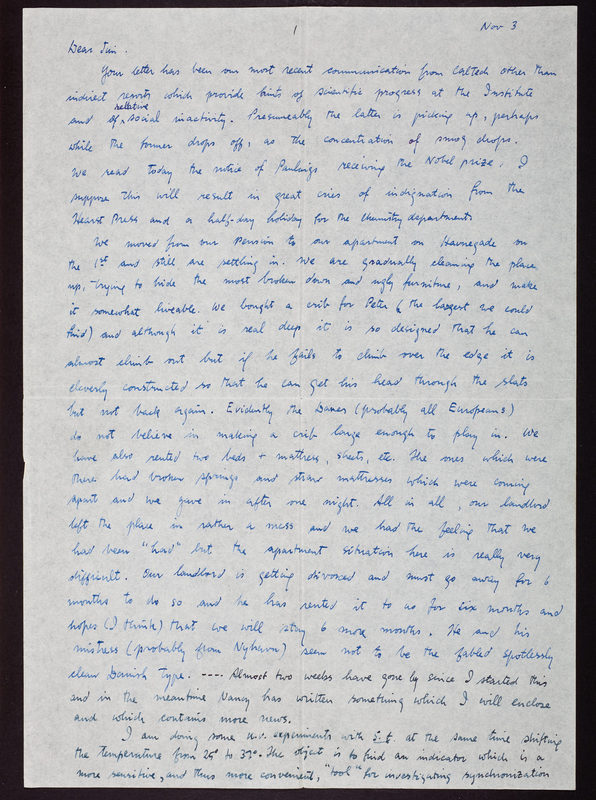 1
Nov 3
Dear Jim.
Your letter has been our most recent communication from Caltech other than
indirect reports which provide hints of scientific progress at the Institute
and of relative social inactivity. Presumeably the latter is picking up, perhaps
while the former drops off, as the concentration of smog drops.
We read today the notice of Paulings receiving the Nobel prize. I
suppose this will result in great cries of indignation from the
Hearst Press and a half-day holiday for the chemistry department.
We moved from our Pension to our apartment on Havnegade on
the 1st and still are settling in. We are gradually cleaning the place
up, trying to hide the most broken down and ugly furniture, and make
it somewhat liveable. We bought a crib for Peter (the largest we could
find) and although it is real deep it is so designed that he can
almost climb out but if he fails to climb over the edge it is
cleverly constructed so that he can get his head through the slats
but not back again. Evidently the Danes (probably all Europeans)
do not believe in making a crib large enough to play in. We
have also rented two beds + mattress, sheets, etc. The ones which were
there had broken springs and straw mattresses which were coming
apart and we gave in after one night. All in all, our landlord
left the place in rather a mess and we had the feeling that we
had been "had" but the apartment situation here is really very
difficult. Our landlord is getting divorced and must go away for 6
months to do so and he has rented it to us for six months and
hopes (I think) that we will stay 6 more months. He and his
mistress (probably from Nyhavn) seem not to be the fabled spotlessly
clean Danish type. ---- Almost two weeks have gone by since I started this
and in the meantime Nancy has written something which I will enclose
and which contains more news.
I am doing some u.v. experiments with S.t. at the same time shifting
the temperature from 25° to 37°. The object is to find an indicator which is a
more sensitive, and thus more convenient, "tool" for investigating synchronization